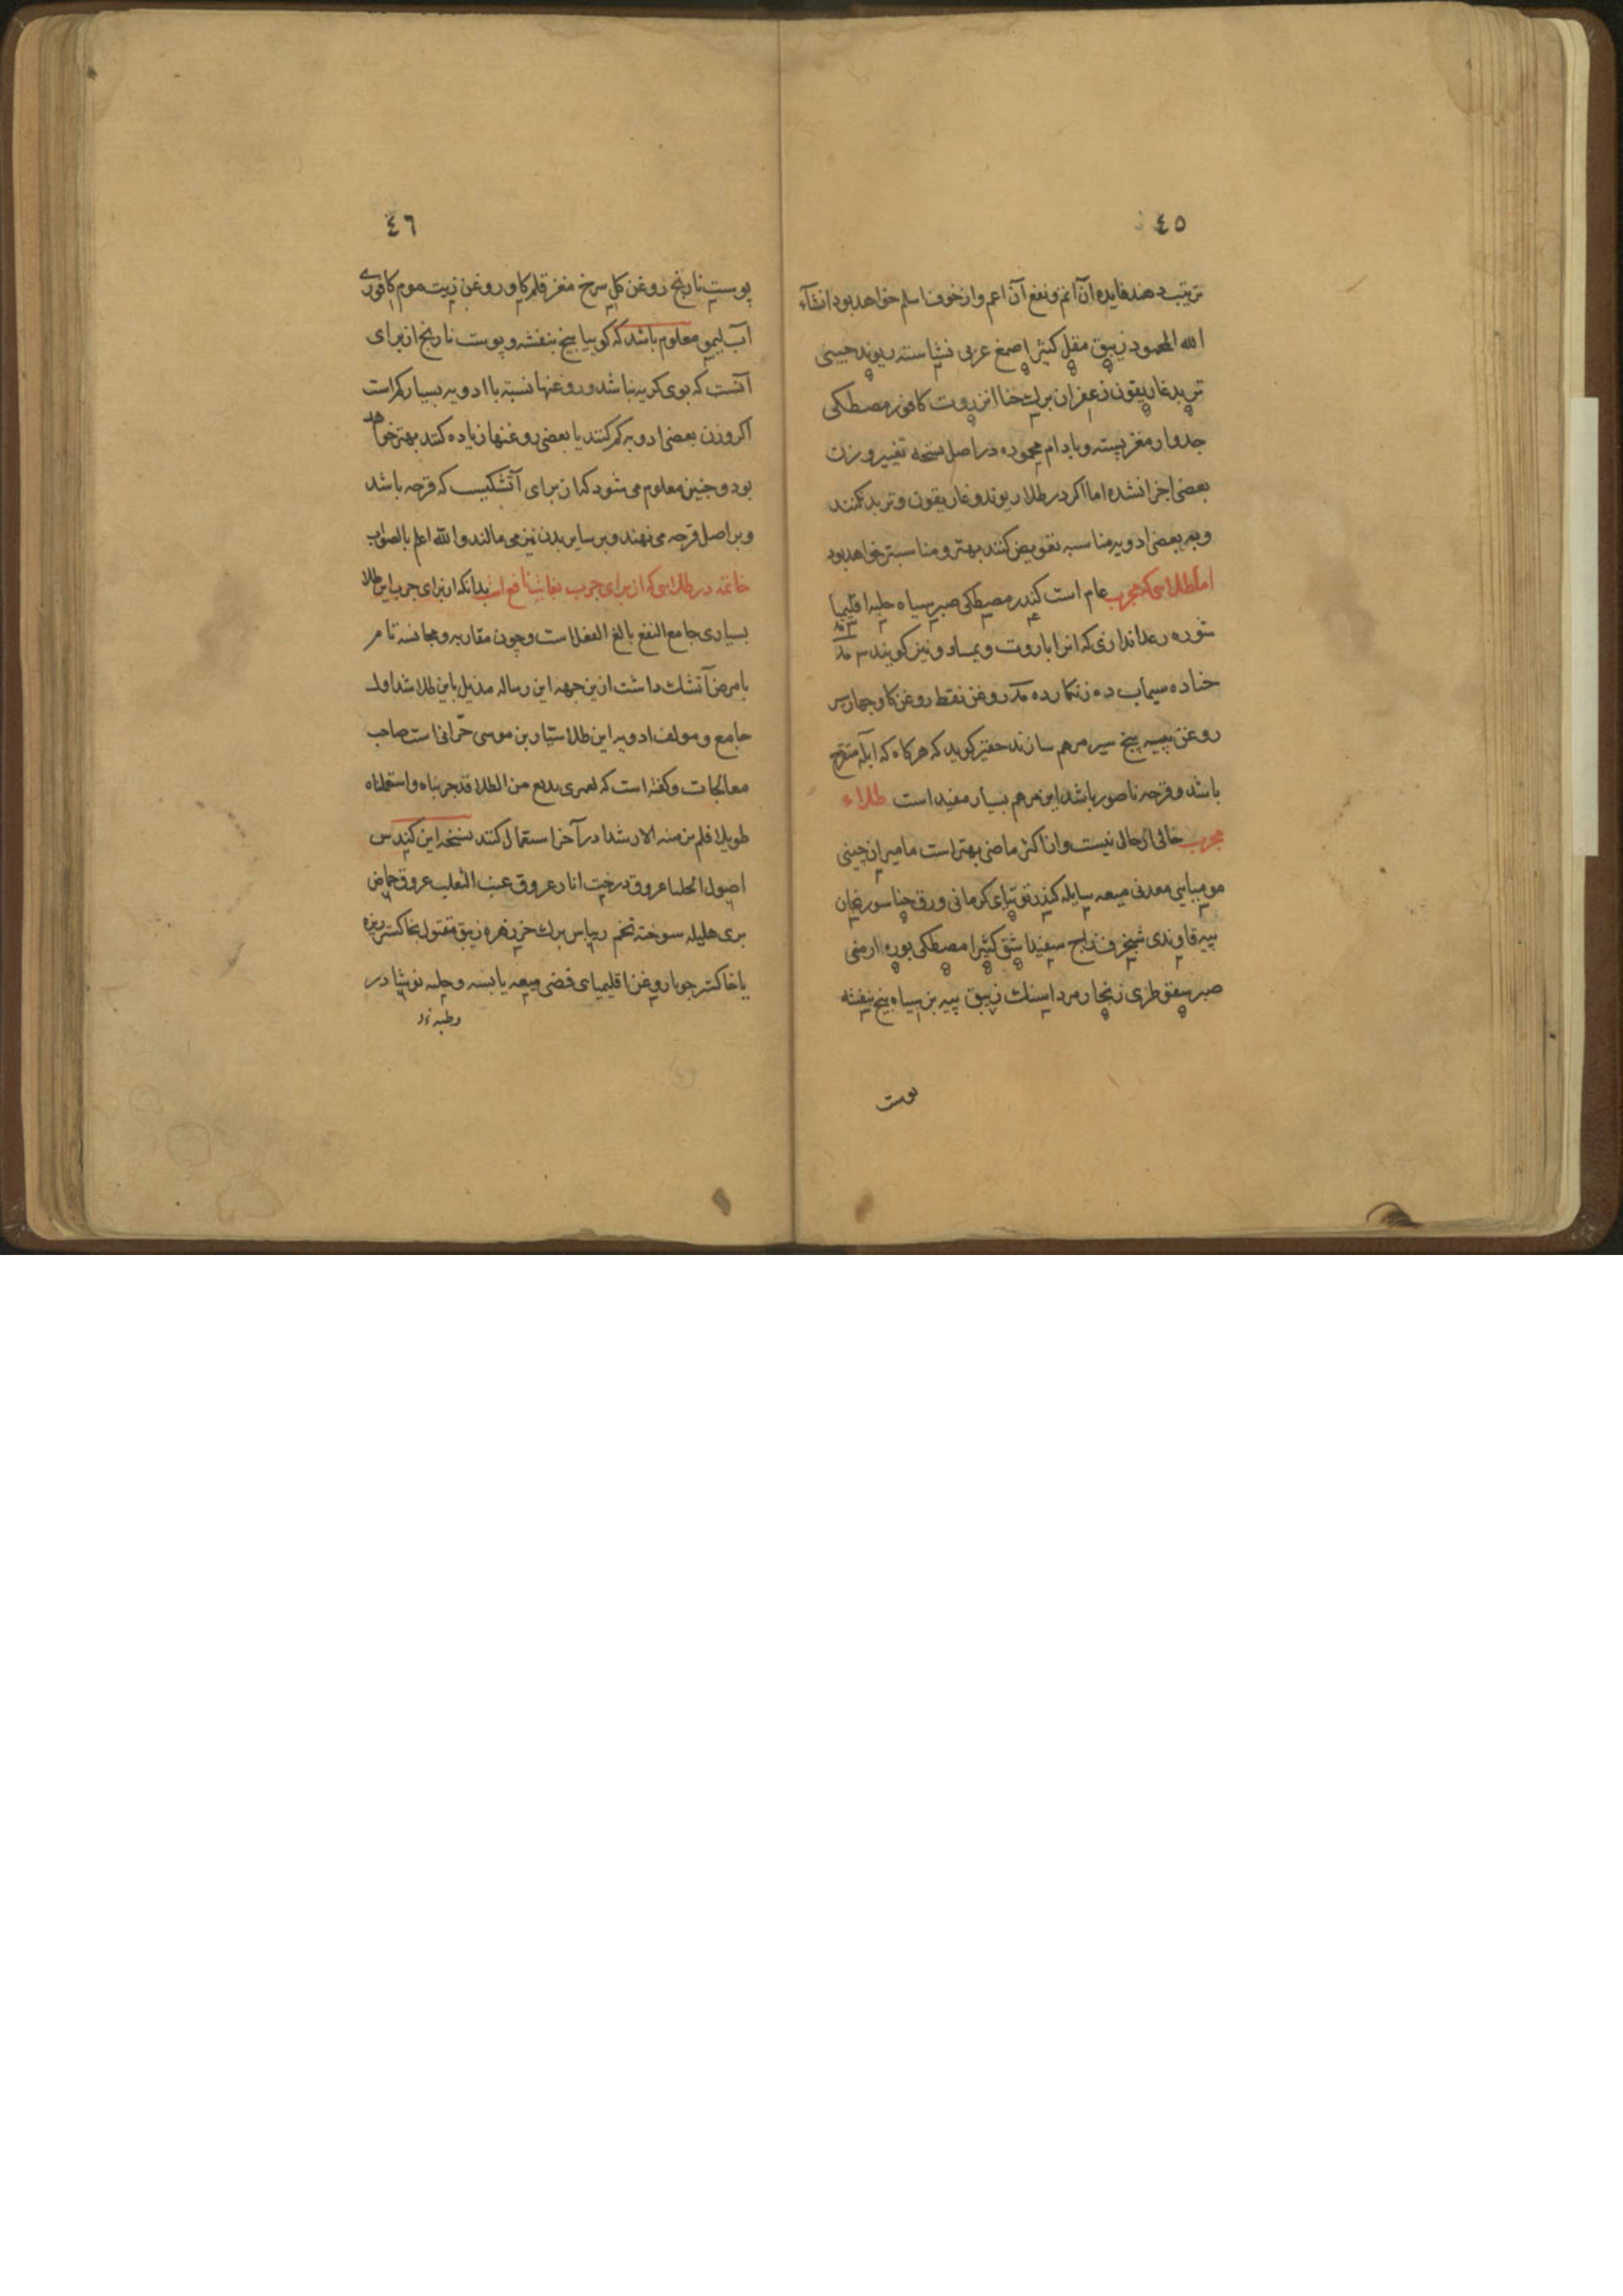 ٤٥
ترتیب دهند فایده آن اتم و نفع آن اعم و از خوف اسلم خواهد بود انشآء
الله المحمود زیبق مقل کثیرا صمغ عربی نشاسته ریوند چینی
تربد غاریقون زعفران برك حنا انزروت کافور مصطکی
جدوار مغز پسته و بادام محموده در اصل نسخه تغییر وزن
بعضی اجزا نشده اما اکر در طلا ریوند و غاریقون و تربد نکنند
و به بعضی ادویه مناسبه تعویض کنند بهتر و مناسبتر خواهد بود
اما طلاسی که مجرب عام است کندر مصطکی صبر سیاه حلبه اقلیمیا
شوره رعدانداری که انرا باروت و نیز کویند
حنا ده سیماب ده زنکار ده روغن نفط روغن کاو چهار سیر
روغن پیه پنج سیر مرهم سازند حقیر کوید که هرکاه که ابله متقرح
باشد و قرحه ناصور باشد این مرهم بسیار مفید است طلاء
مجرب خالی از حالی نیست و از اکثر ماضی بهتر است مامیران چینی
مومیایی معدنی میعه سایله کندر توتیای کرمانی ورق حنا سورنجان
پیه قاوندی شنجرف سفیداب اشق کثیرا مصطکی بوره ارمنی
صبر سقوطری زنجار مرداسنك زیبق پیه بز سیاه بیخ بنفشه
پوست
٤٦
پوست نارنج روغن کل سرخ مغز قلم کاو روغن زیت موم کافوری
آب لیمو معلوم باشد که کویا بیخ بنفشه و پوست نارنج از برای
آنست که بوی کریه نباشد و روغنها نسبة با ادویه بسیار کم است
اکر وزن بعضی ادویه کم کنند یا بعضی روغنها زیاده کنند بهتر خواهد
بود و چنین معلوم می شود که از برای آتشکیست که قرحه باشد
و بر اصل قرحه می نهند و بر سایر بدن نیز می مالند والله اعلم بالصواب
خاتمه در طلاسی که از برای جرب بغایت نافع است بدانکه از برای جرب این طلا
بسیاری جامع النفع بالغ الفعل است و چون مقاربه و مجانسه تامر
با مرض آتشك داشت ازین جهه این رساله مذیل باین طلا شد اول
جامع و مولف ادویه این طلا سیار بن موسی حرانی است صاحب
معالجات و کفته است که لعمری بدیع من الطلا قد جربناه و استعملناه
طویلا فلم نر منه الا رشدا در آخر استعمال کنند نسخه این کندس
اصول عروق درخت انار عروق عنب الثعلب عروق حماض
بری هلیله سوخته تخم ریباس برك خرزهره زیبق مقتول بخاکستر ریزه
یا خاکستر جو یا روغن اقلیمیای فضی میعه یابسه و حلبه نوشادر